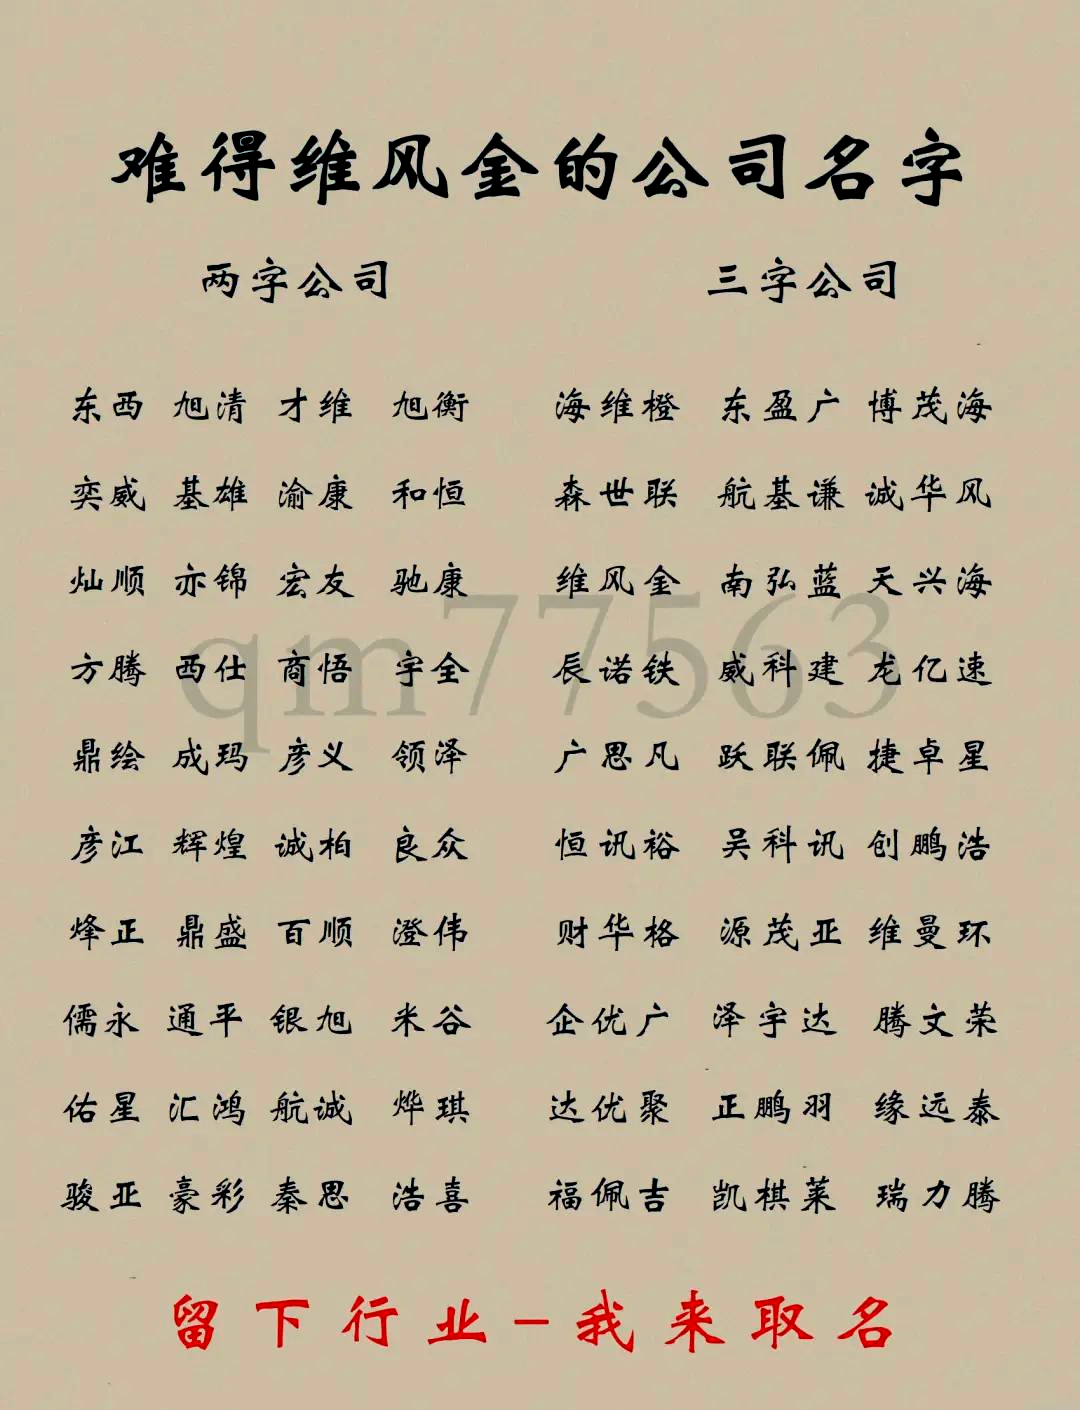 难得维风金的公司名字
两字公司 三字公司
东西 旭清 才维 旭衡 海维橙 东盈广 博茂海
奕威 基雄 渝康 和恒 森世联 航基谦 诚华风
灿顺 亦锦 宏友 驰康 维风金 南弘蓝 天兴海
qm77563
方腾 西仕 商悟 宇全 辰诺铁 威科建 龙亿速
鼎绘 成玛 彦义 领泽 广思凡 跃联佩 捷卓星
彦江 辉煌 诚柏 良众 恒讯裕 吴科讯 创鹏浩
烽正 鼎盛 百顺 澄伟 财华格 源茂亚 维曼环
儒永 通平 银旭 米谷 企优广 泽宇达 腾文荣
佑星 汇鸿 航诚 烨琪 达优聚 正鹏羽 缘远泰
骏亚 豪彩 秦思 浩喜 福佩吉 凯棋莱 瑞力腾
留下行业-我来取名